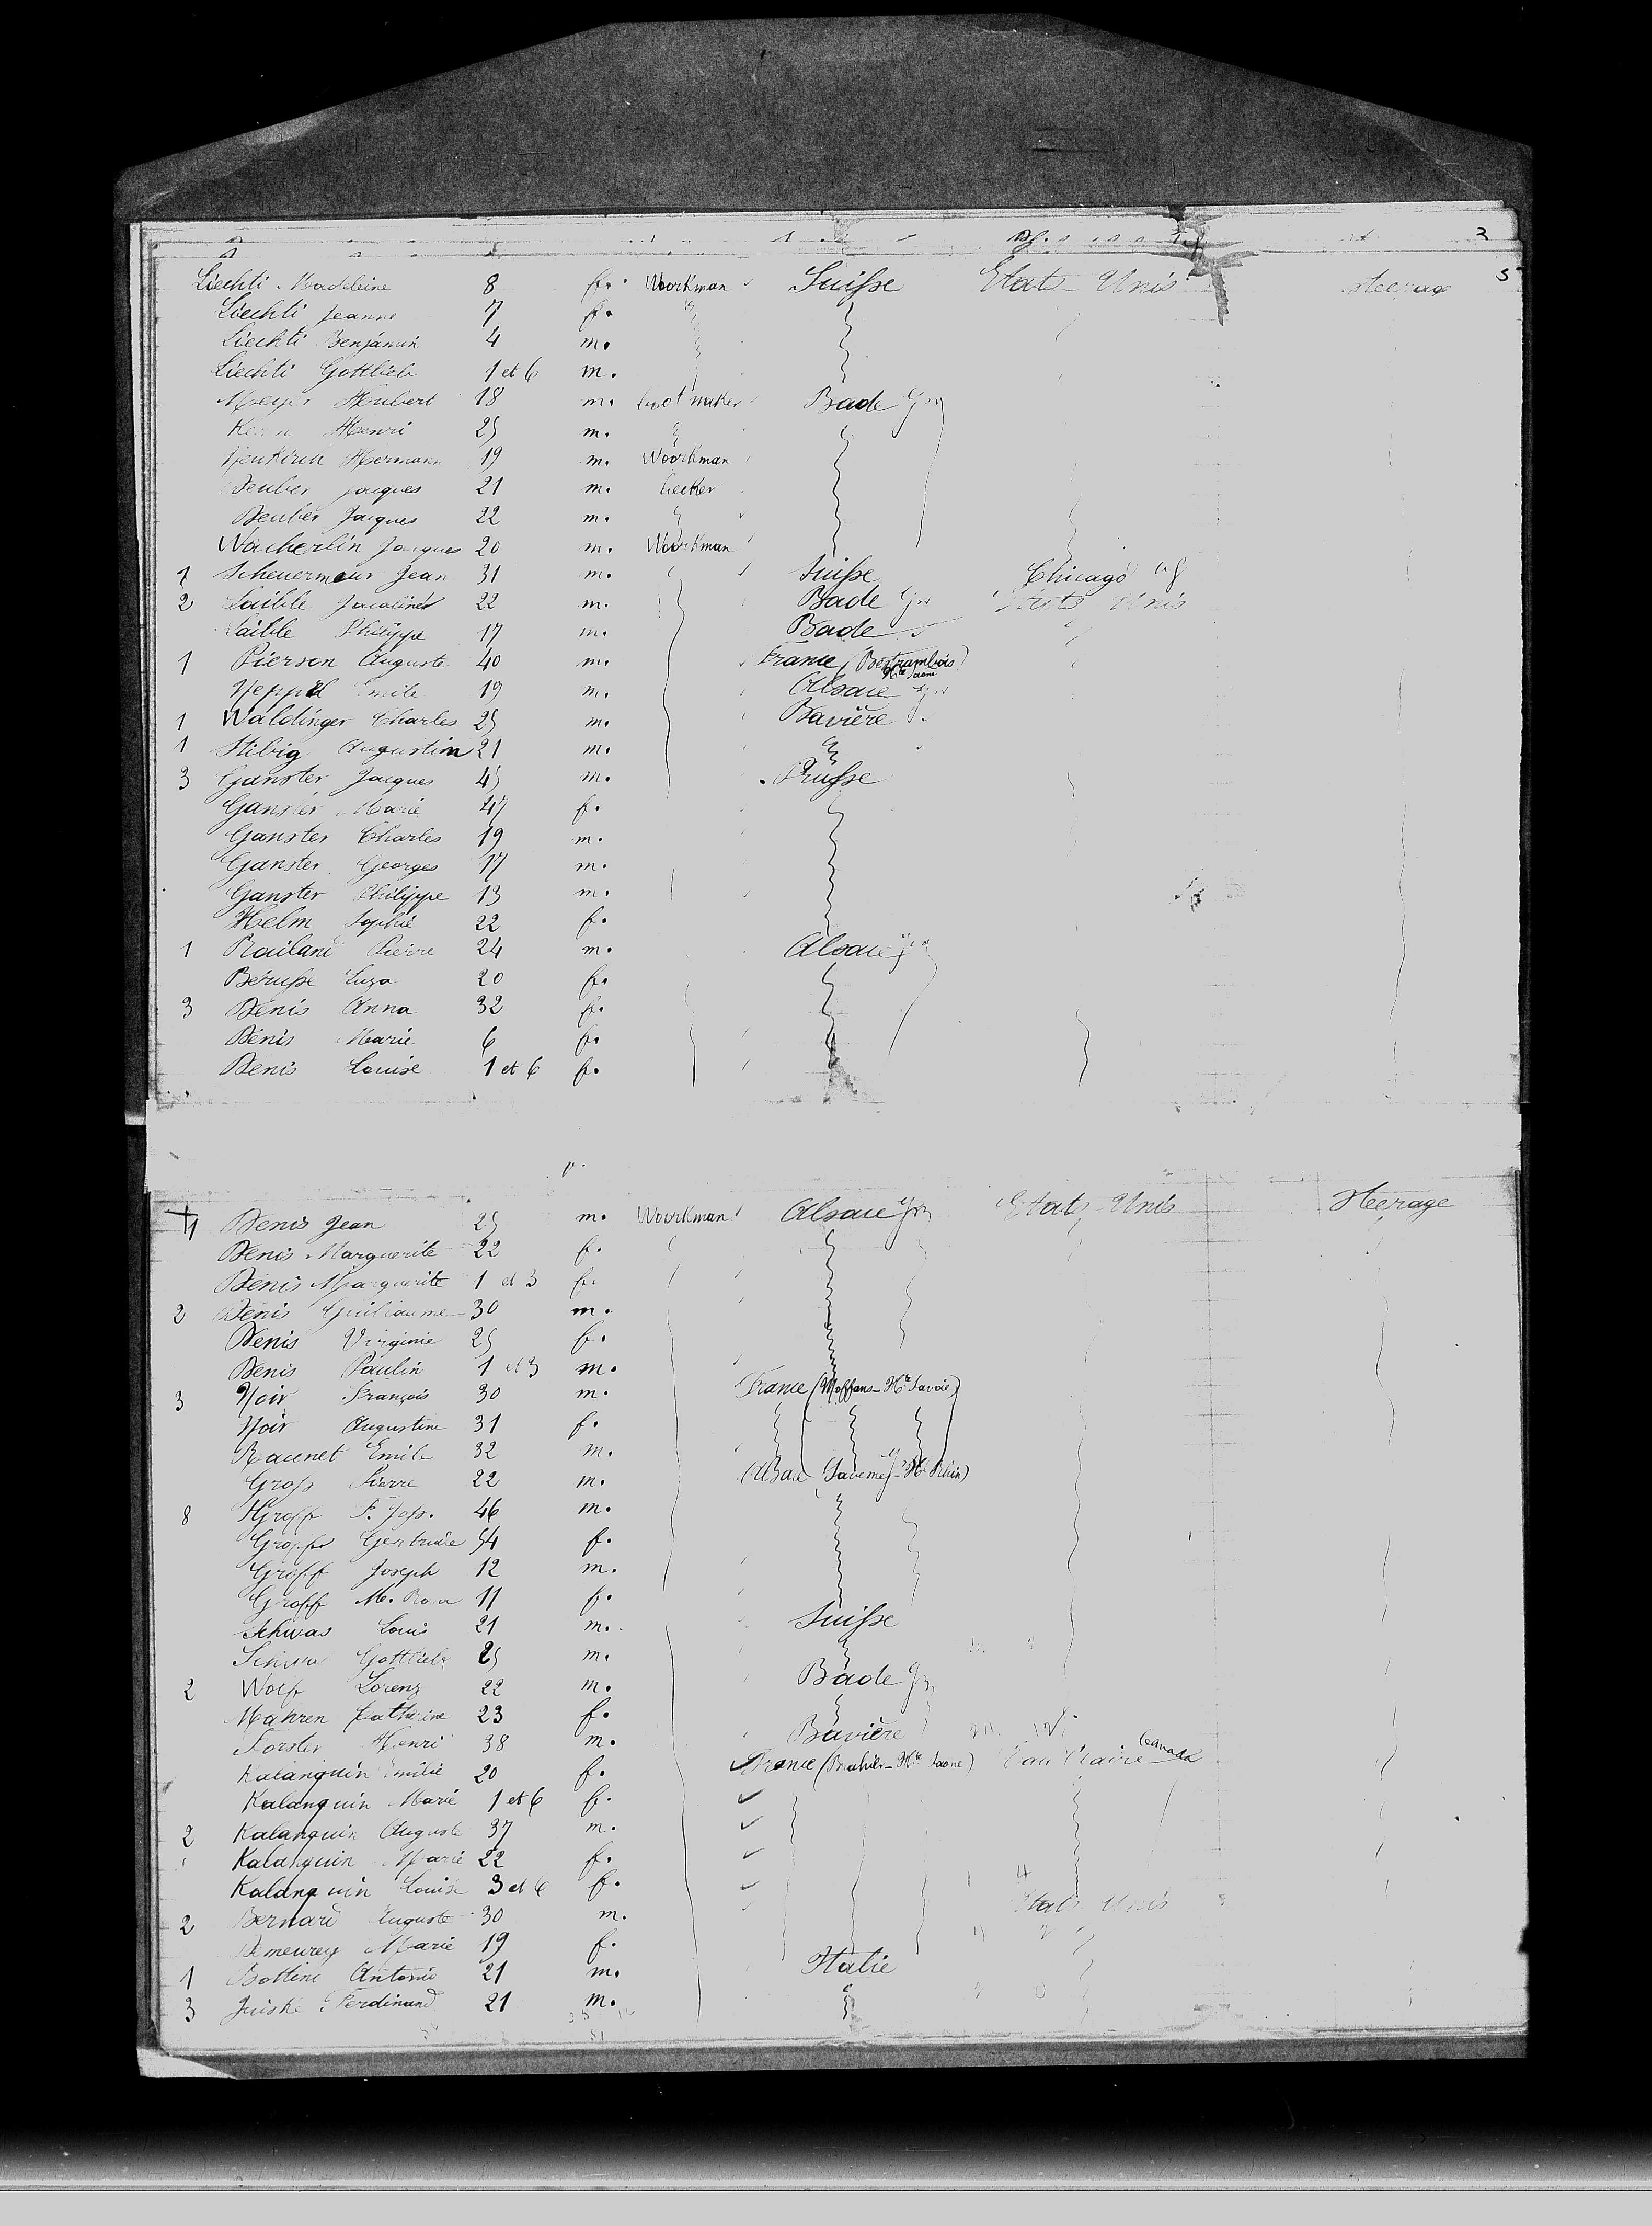 2
5
Liechti Madeleine 8 f. Woorkman Suisse Etats-Unis Steerage
Liechti Jeanne 7 f.
Liechti Benjamin 4 m.
Liechti Gottlieb 1 et 6 m.
Meyer Hubert 18 m. boot maker Bade Gr
Henri 25 m.
Hermann 19 m. Woorkman
Deuber Jacques 21 m.
Deuber Jacques 22 m.
Wacherlin Jacques 20 m. Woorkman
1 Scheuermeur Jean 31 m. Suisse Chicago
2 Laible 22 m. Bade Gr Etats Unis
Laible Philippe 17 m. Bade
1 Pierson Auguste 40 m. France (Bertrambois)
Hte Saone
Emile 19 m. Alsace Gr
1 Waldinger Charles 25 m. Bavière
1 Stibig Augustin 21 m.
3 Ganster Jacques 45 m. Prusse
Ganster Marie 47 f.
Ganster Charles 19 m.
Ganster Georges 17 m.
Ganster Philippe 13 m.
Helm Sophie 22 f.
1 Railand Pierre 24 m. Alsace
20 f.
3 Denis Anna 32 f.
Denis Marie 6 f.
Denis Louise 1 et 6 f.
1 Denis Jean 25 m. Woorkman Alsace Gr Etats-Unis Steerage
Denis Marguerite 22 f.
Denis Marguerite 1 et 3 f.
2 Denis Guillaume 30 m.
Denis Virginie 25 f.
Denis Paulin 1 et 3 m.
3 Noir François 30 m. France (Moffans-Hte Savoie)
Noir Augustine 31 f.
Racenet Emile 32 m.
Gross Pierre 22 m.
8 Groff F. Jos. 46 m.
Groff Gertrude 54 f.
Groff Joseph 12 m.
Groff M. Rosa 11 f.
Schwas Louis 21 m. Suisse
Gottlieb 25 m.
2 Wolf Lorenz 22 m. Bade Gr
Mahren Catherine 23 f.
Forster Henri 38 m. Bavière
Kalanquin Emilie 20 f. France Hte Saone) Eau Claire Canada
Kalanquin Marie 1 et 6 f.
2 Kalanquin Auguste 37 m.
Kalanquin Marie 22 f.
Kalanquin Louise 3 et 6 f.
2 Bernard Auguste 30 m. Etats Unis
Demeurey Marie 19 f.
1 Bottini Antonio 21 m. Italie
3 Juiske Ferdinand 21 m.